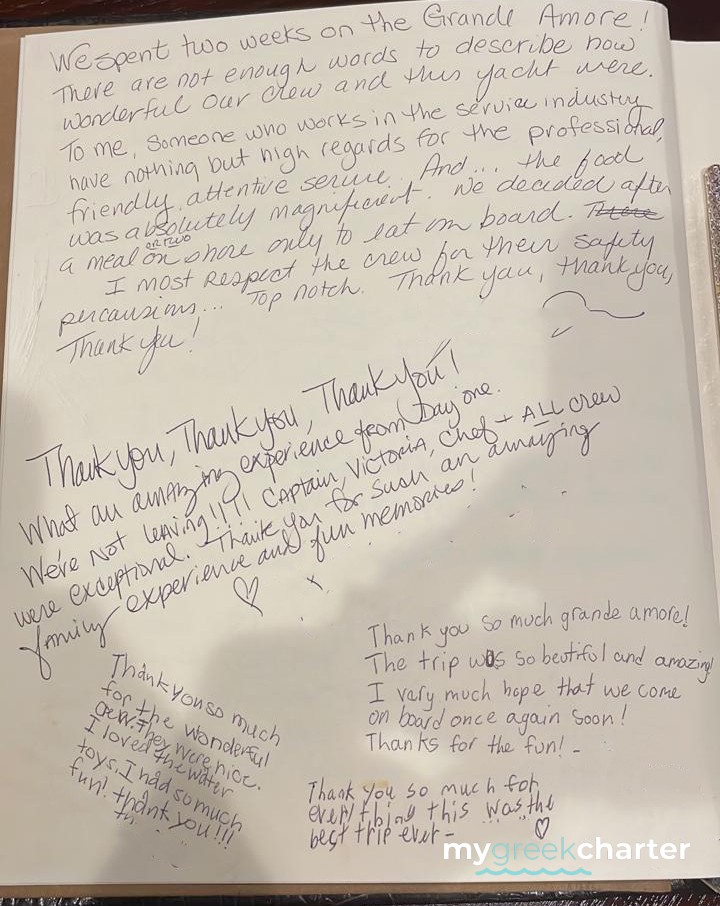 We spent two weeks on the Grande Amore!
There are not enough words to describe how
wonderful our crew and this yacht were.
To me, someone who works in the service industry
have nothing but high regards for the professional,
friendly, attentive service. And... the food
was absolutely magnificent. We decided after
a meal on shore only to eat on board. There
or two
I most respect the crew for their safety
percausions... Top notch. Thank you, thank you,
Thank you!
Thank you, Thank you, Thank you!
What an amazing experience from Day one.
We're NOT leaving!!!! Captain, Victoria, Chef + ALL crew
were exceptional. Thank you for such an amazing
family experience and fun memories!
Thank you so much grande amore!
The trip was so beutiful and amazing!
I vary much hope that we come
on board once again soon!
Thanks for the fun! -
Thank you so much
for the wonderful
crew. They were nice.
I loved the water
toys. I had so much
fun! thank you!!!
Thank you so much for
everything this was the
best trip ever -
mygreekcharter